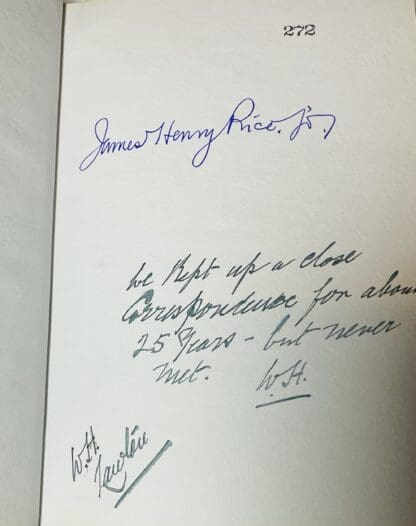 272
James Henry Rice. Jr.,
We Kept up a close
Correspondence for about
25 Years - but never
met. W.H.
W.H.